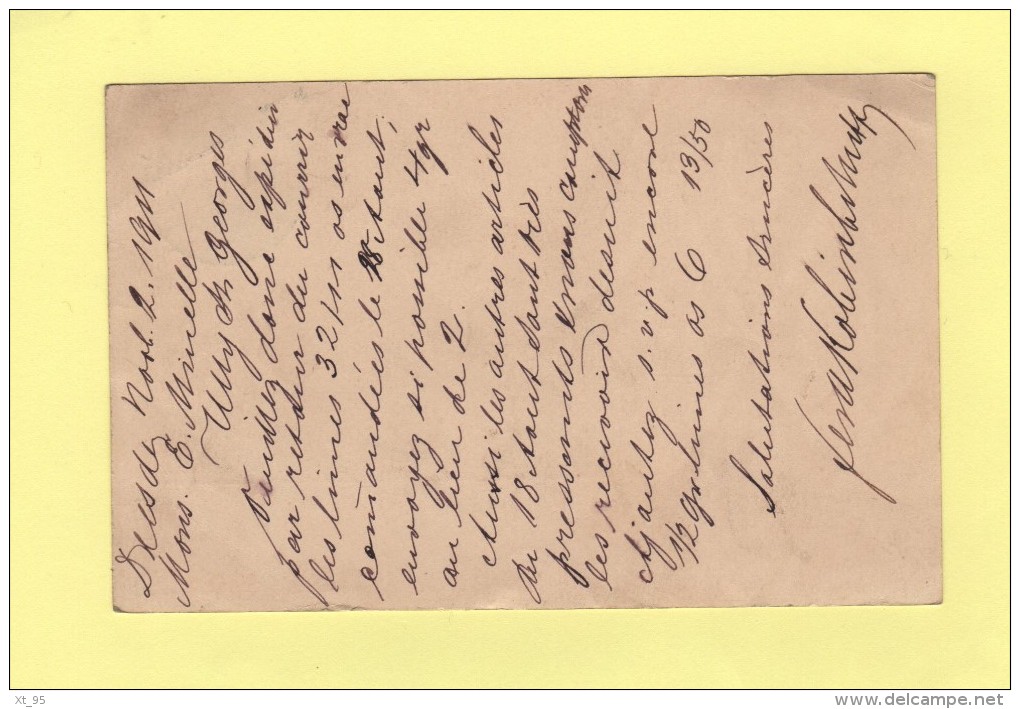 Dresde Nov. 2. 1911
Mons. E. Minelle
Ury St Georges
Veuillez donc expédier
par retour du courrier
les limes 32/11 os en vrac
comandées le 28 /stant,
envoyez si possible 4 gr
au lieu de 2.
Aussi les autres articles
du 18 tout sont très
pressants &nous comptons
les recevoir desuit
Ajoutez s.v.p encore
1/2 gr limes os 6 13/50
Salutations sincères
Xt_95
www.delcampe.net